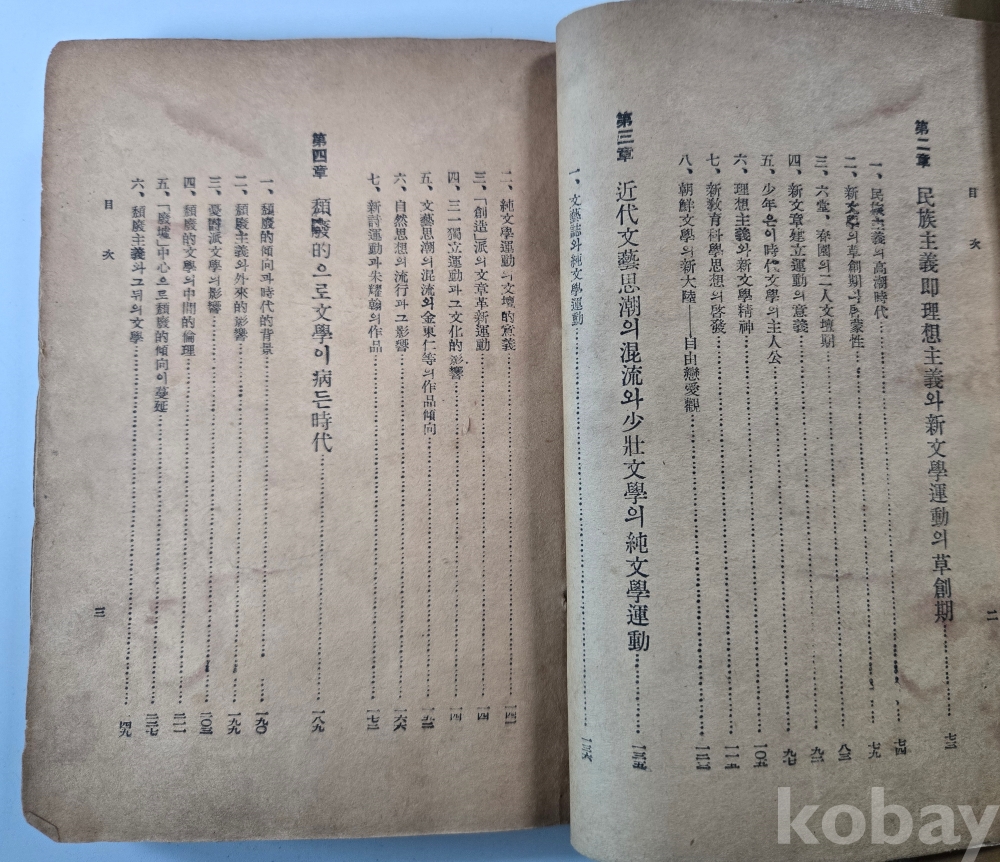 目 次
二
第二章 民族主義即理想主義와 新文學運動의 草創期 七三
一、民族主義의 高潮時代 七四
二、新文學의 草創期의 啓蒙性 七九
三、六堂、春園의 二人文壇期 八三
四、新文章建立運動의 意義 九二
五、少年은이 時代文學의 主人公 九七
六、理想主義와 新文學精神 一〇五
七、新敎育科學思想의 啓發 一一五
八、朝鮮文學의 新大陸──自由戀愛觀
第三章 近代文藝思潮의 混流와 少壯文學의 純文學運動 一三五
一、文藝誌와 純文學運動 一三六
二、純文學運動의 文壇的意義
三、「創造」派의 文章革新運動
四、三一獨立運動과 그 文化的影響
五、文藝思潮의 混流와 金東仁等의 作品傾向
六、自然思想의 流行과 그 影響 一六六
七、新詩運動과 朱耀翰의 作品 一七二
第四章 頹廢的으로 文學이 病든 時代 一八九
一、頹廢的傾向과 時代的背景 一九〇
二、頹廢主義와 外來的影響
三、憂鬱派文學의 影響
四、頹廢的文學의 中間的倫理
五、「廢墟」中心으로 頹廢的傾向이 蔓延
六、頹廢主義와 그 뒤의 文學
目 次
三
kobay